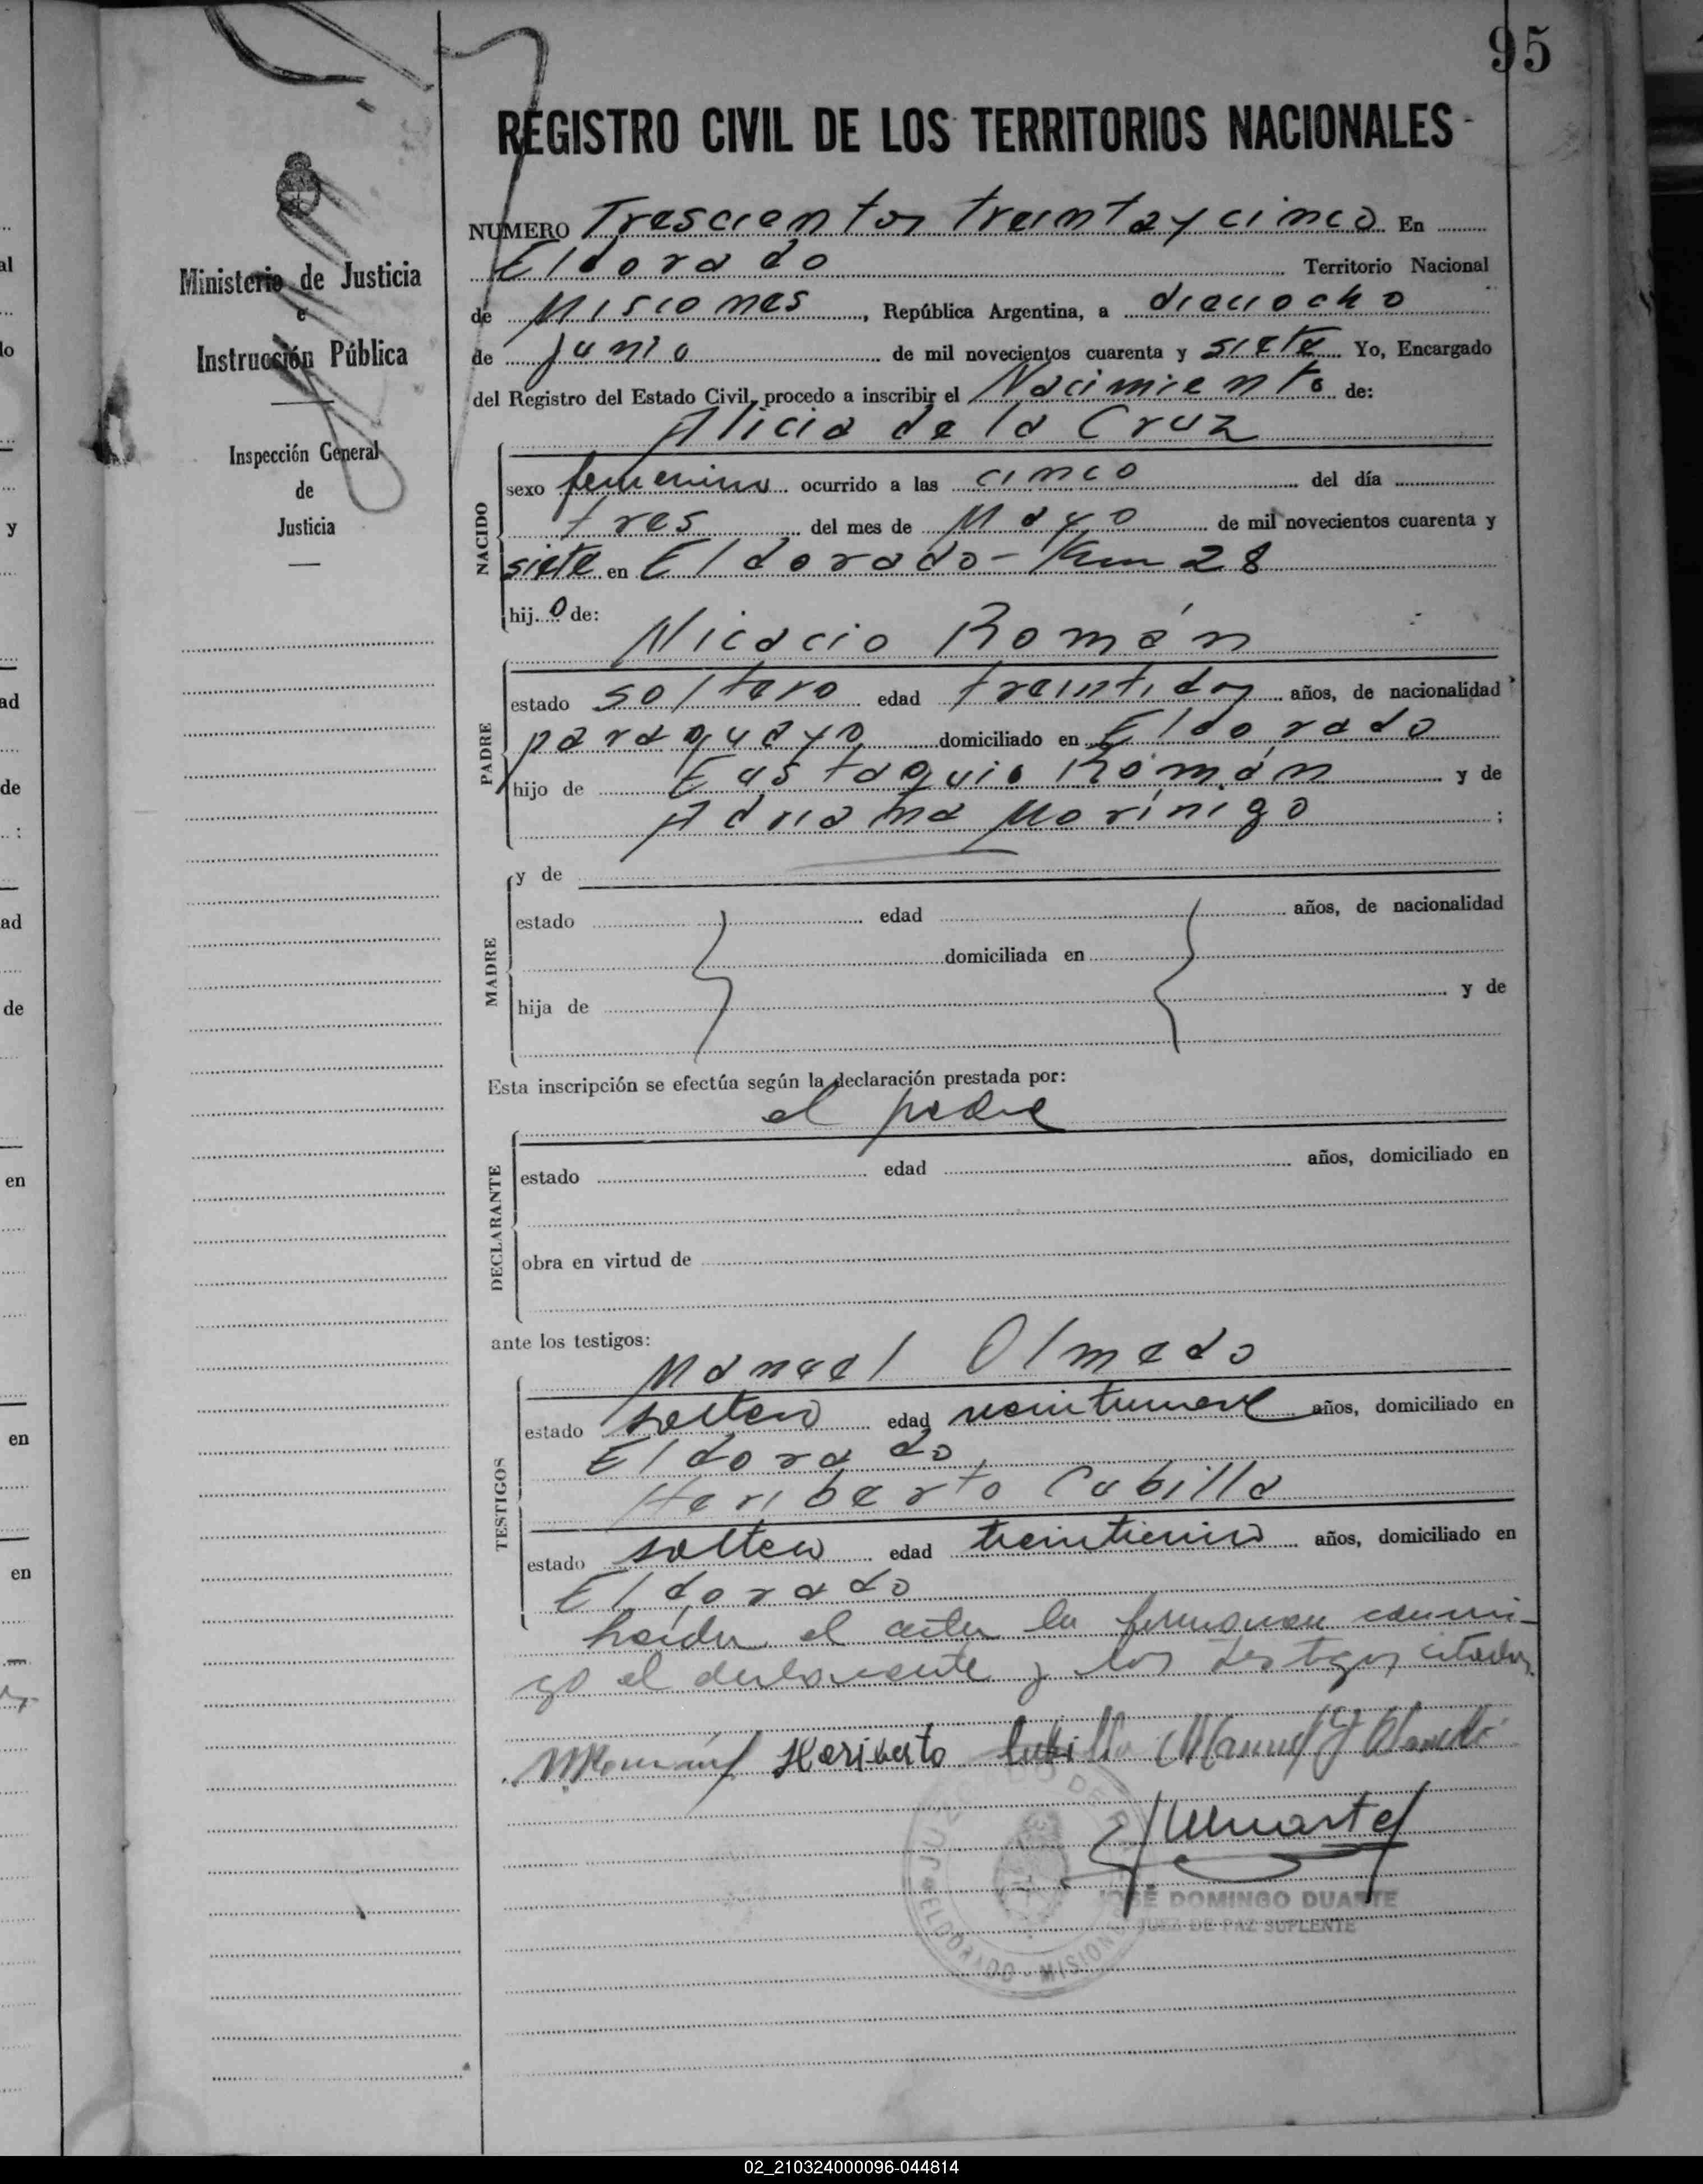 95
REGISTRO CIVIL DE LOS TERRITORIOS NACIONALES
Ministerio de Justicia
e
Instrucción Pública
Inspección General
de
Justicia
NUMERO Trescientos treinta y cinco En
Eldorado Territorio Nacional
de Misiones, República Argentina, a dieciocho
de junio de mil novecientos cuarenta y siete Yo, Encargado
del Registro del Estado Civil, procedo a inscribir el Nacimiento de:
Alicia de la Cruz
NACIDO
sexo femenino ocurrido a las cinco del día
tres del mes de Mayo de mil novecientos cuarenta y
siete en Eldorado - Km 28
hijo de:
Nicacio Román
PADRE
estado soltero edad treintidos años, de nacionalidad
paraguayo domiciliado en Eldorado
hijo de Eustaquio Román y de
Adriana Morínigo ;
MADRE
y de
estado edad años, de nacionalidad
domiciliada en
hija de y de
Esta inscripción se efectúa según la declaración prestada por:
el padre
DECLARANTE
estado edad años, domiciliado en
obra en virtud de
ante los testigos:
Manuel Olmedo
TESTIGOS
estado soltero edad veintinueve años, domiciliado en
Eldorado
Heriberto Cubilla
estado soltero edad treinticinco años, domiciliado en
Eldorado
el acta la firman conmi-
go el declarante y los testigos citados
Heriberto Cubilla Manuel
JOSÉ DOMINGO DUARTE
JUEZ DE PAZ SUPLENTE
JUZGADO DE PAZ
ELDORADO - MISIONES
02_210324000096-044814